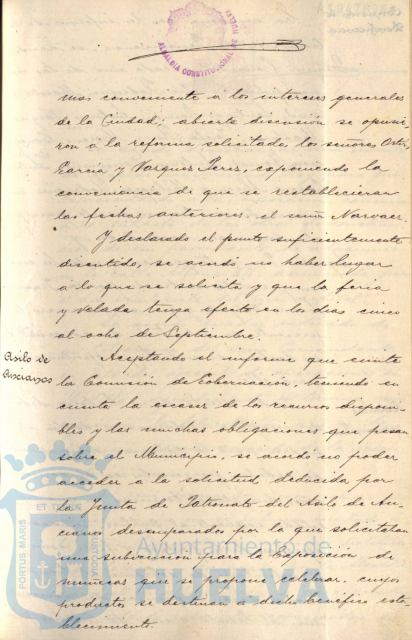 ALCALDIA CONSTITUCIONAL DE HUELVA
mas conveniente á los intereses generales
de la Ciudad; abierta discusión se opusie-
ron á la reforma solicitada, los señores Ortiz,
García y Vazquez Perez, exponiendo la
conveniencia de que se restablecieran
las fechas anteriores, el señor Narvaez.
Y declarado el punto suficientemente
discutido, se acordó no haber lugar
á lo que se solicita y que la feria
y Velada tenga efecto en los dias cinco
al ocho de Septiembre.
Asilo de
Ancianos
Aceptando el informe que emite
la Comisión de Gobernación, teniendo en
cuenta la escasez de los recursos disponi-
bles y las muchas obligaciones que pesan
sobre el Municipio, se acordó no poder
acceder á la solicitud deducida por
la Junta de Patronato del Asilo de An-
cianos desamparados por la que solicitaban
una subvención para la Exposición de
muñecas que se propone celebrar, cuyos
productos se destinan á dicho benéfico esta-
blecimiento.
PORTUS MARIS
ET TERRÆ
Ayuntamiento de
HUELVA